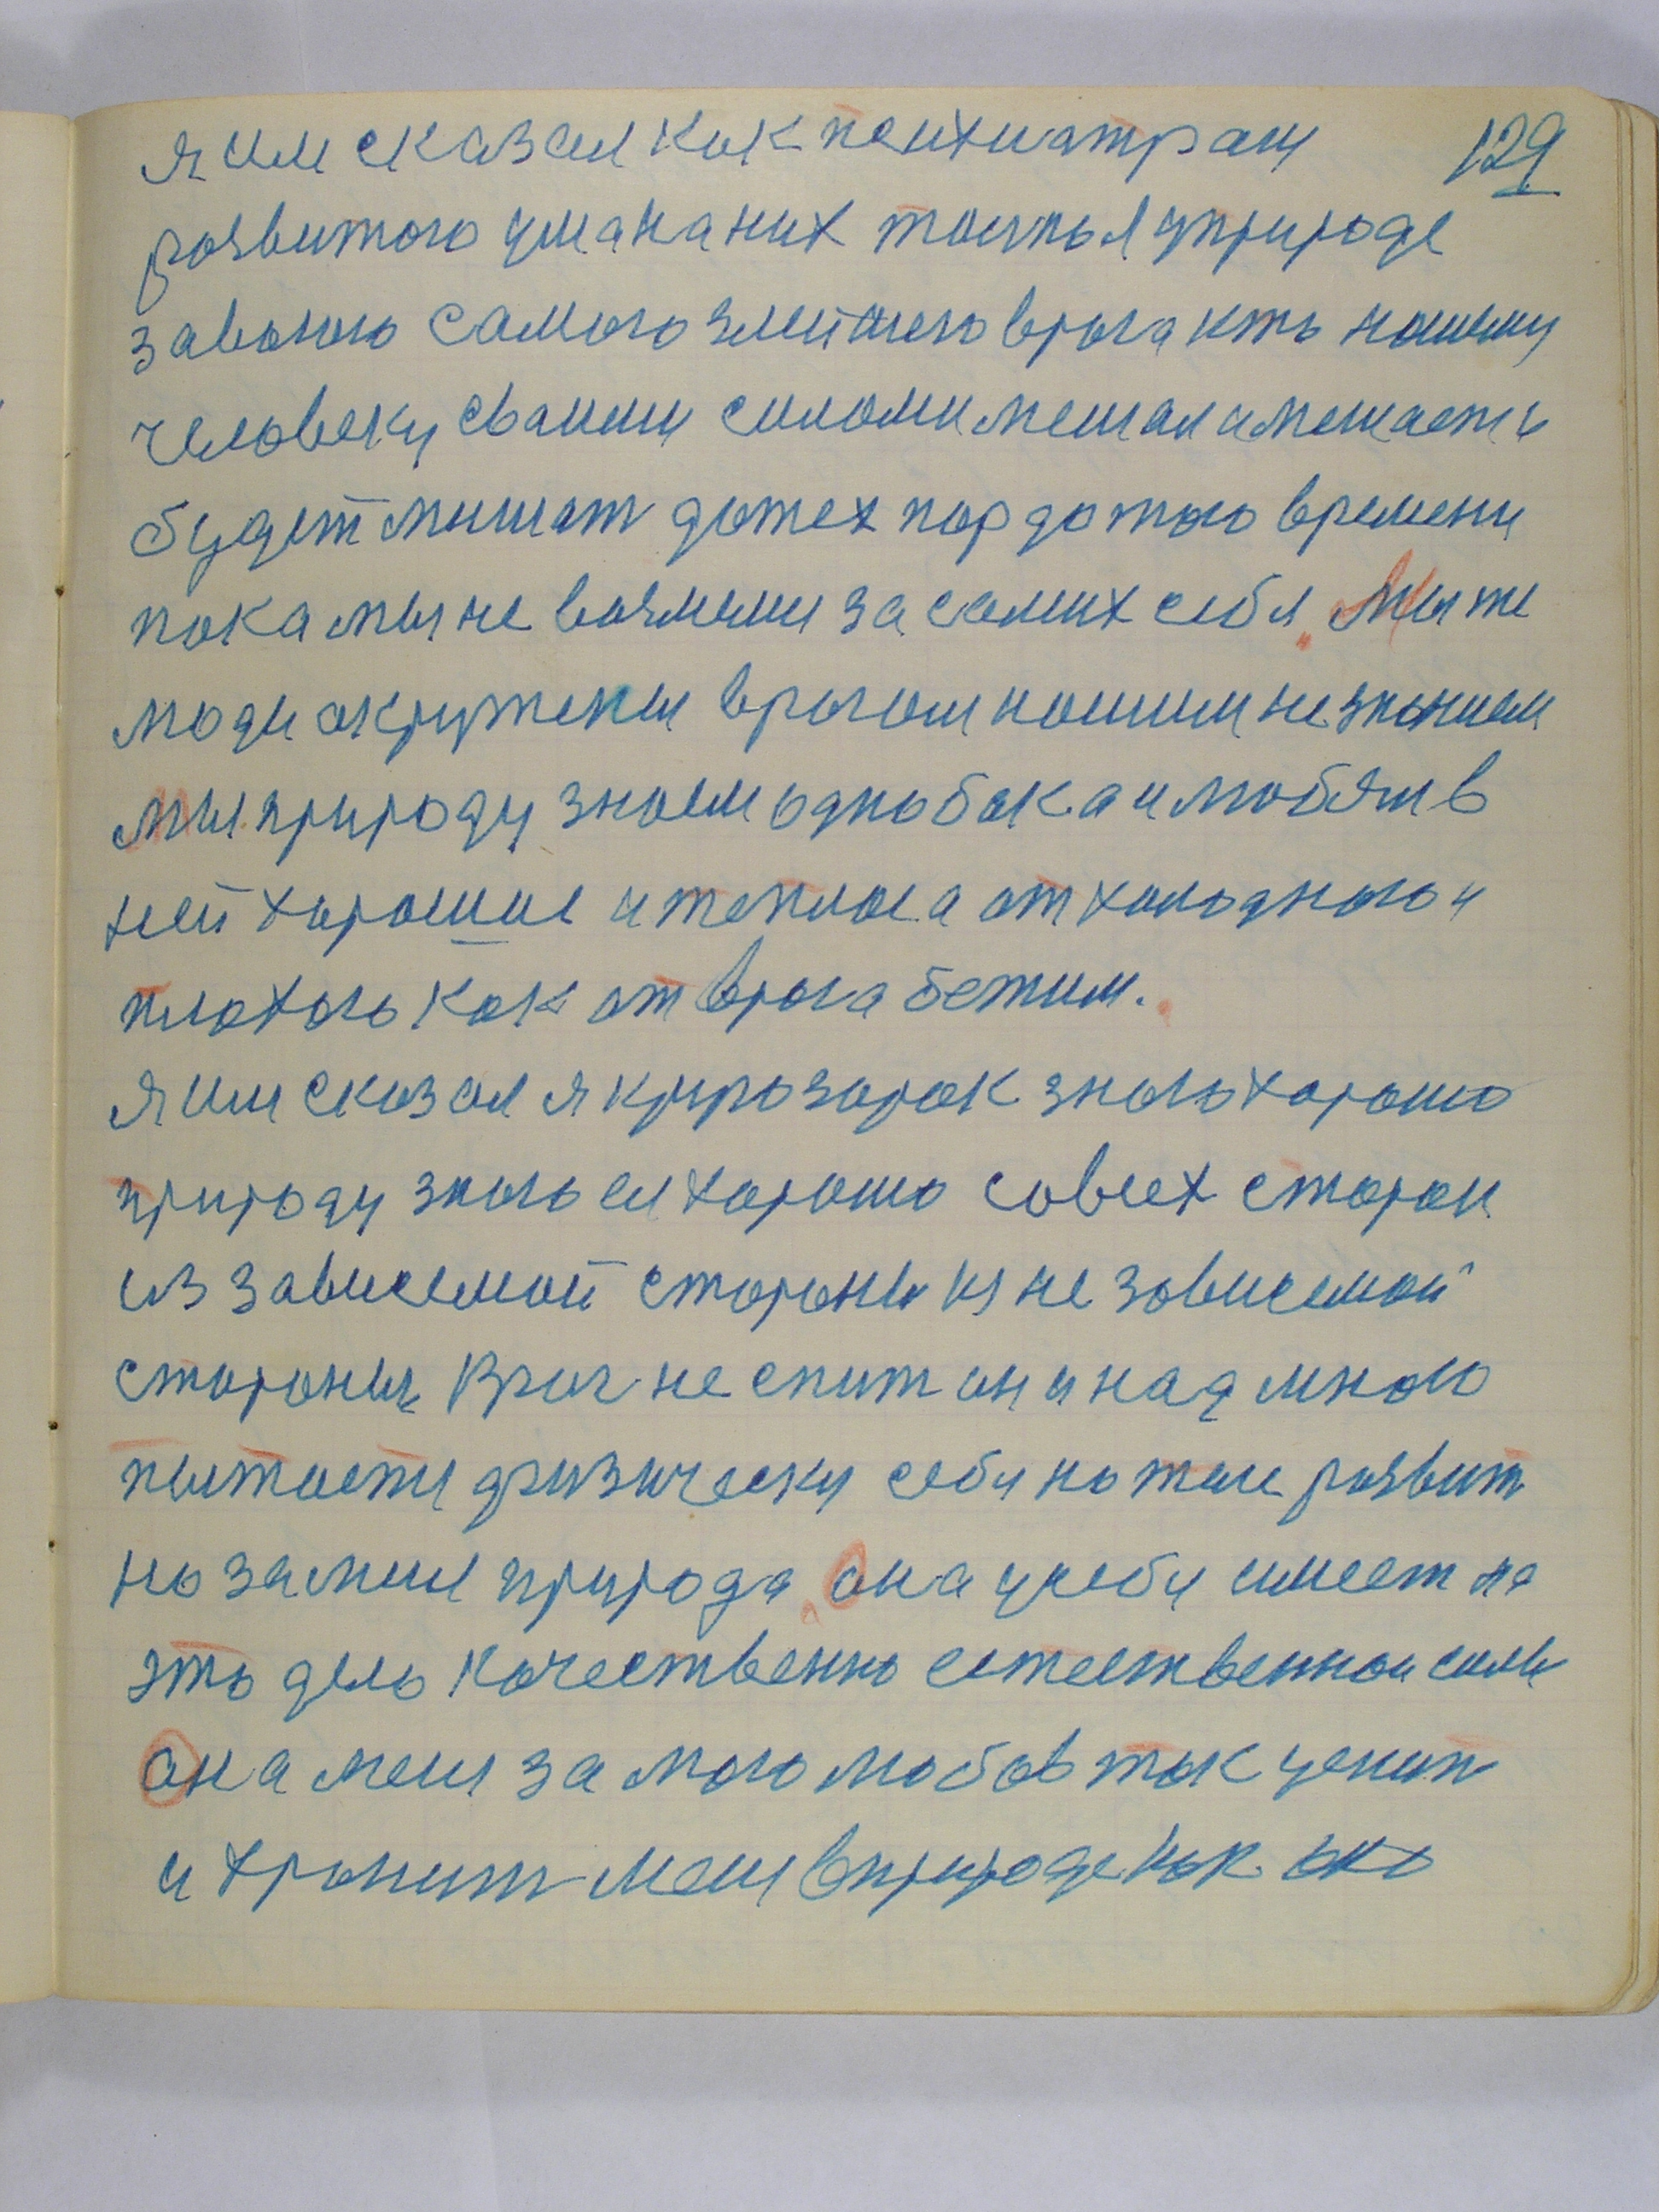 129
я им сказал как психиатрам
розвитого ума на них таила я у природе
завоюю самого злейшего врага кто нашему
человеку сваими силоми мешал и мешает и
будет мишат до тех пор до того времени
пока мы не возмеми за самих себя. Мы же
люди окружены врагом нашим незнанием
мы природу знаем однобока и любям в
ней харошие и теплое а от холодного и
плохого как от врага бежим.
Я им сказал я кругозорок знаю харошо
природу знаю ея харошо со всех сторон
из зависемой стороны из не зависемой
стороны. Враг не спит он и над мною
пытается физически себи на теле розвит
но за меня природа. Она у себя имеет на
это дело качественно естественнои силы
она меня за мою любов так ценит
и хранит меня в природе как око